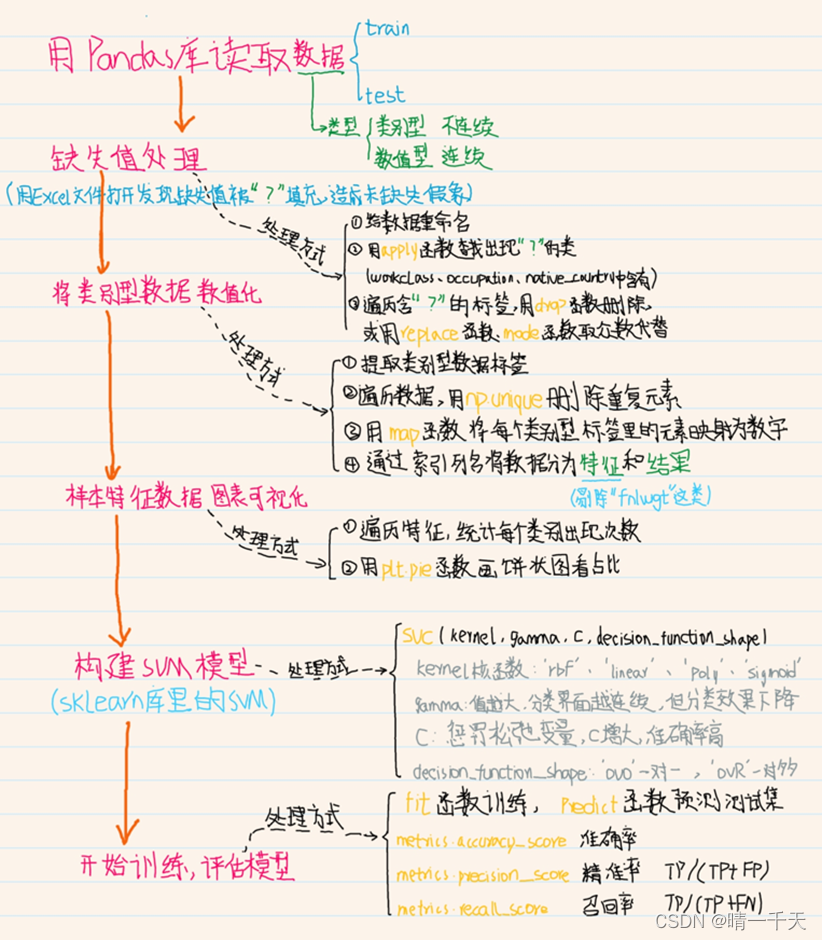 用Pandas库读取数据
train
test
类型
类别型 不连续
数值型 连续
缺失值处理
(用Excel文件打开发现缺失值被“?”填充,造成未缺失假象)
处理方式
①给数据重命名
②用apply函数查找出现“?”的类
(workclass、occupation、native_country中含有)
③遍历含“?”的标签,用drop函数删除
或用replace函数、mode函数取众数代替
将类别型数据数值化
处理方式
①提取类别型数据标签
②遍历数据,用np.unique删除重复元素
③用map函数将每个类别型标签里的元素映射为数字
④通过索引列名将数据分为特征和结果
(剔除“fnlwgt”这类)
样本特征数据图表可视化
处理方式
①遍历特征,统计每个类别出现次数
②用plt.pie函数画饼状图看占比
构建SVM模型
(sklearn库里的SVM)
处理方式
SVC(kernel,gamma,C,decision_function_shape)
kernel核函数:'rbf'、'linear'、'poly'、'sigmoid'
gamma:值越大,分类界面越连续,但分类效果下降
C:惩罚松弛变量,C增大,准确率高
decision_function_shape:'ovo'一对一,'ovR'一对多
开始训练,评估模型
处理方式
fit函数训练,Predict函数预测测试集
metrics.accuracy_score 准确率
metrics.precision_score 精准率 TP/(TP+FP)
metrics.recall_score 召回率 TP/(TP+FN)
CSDN @晴一千天